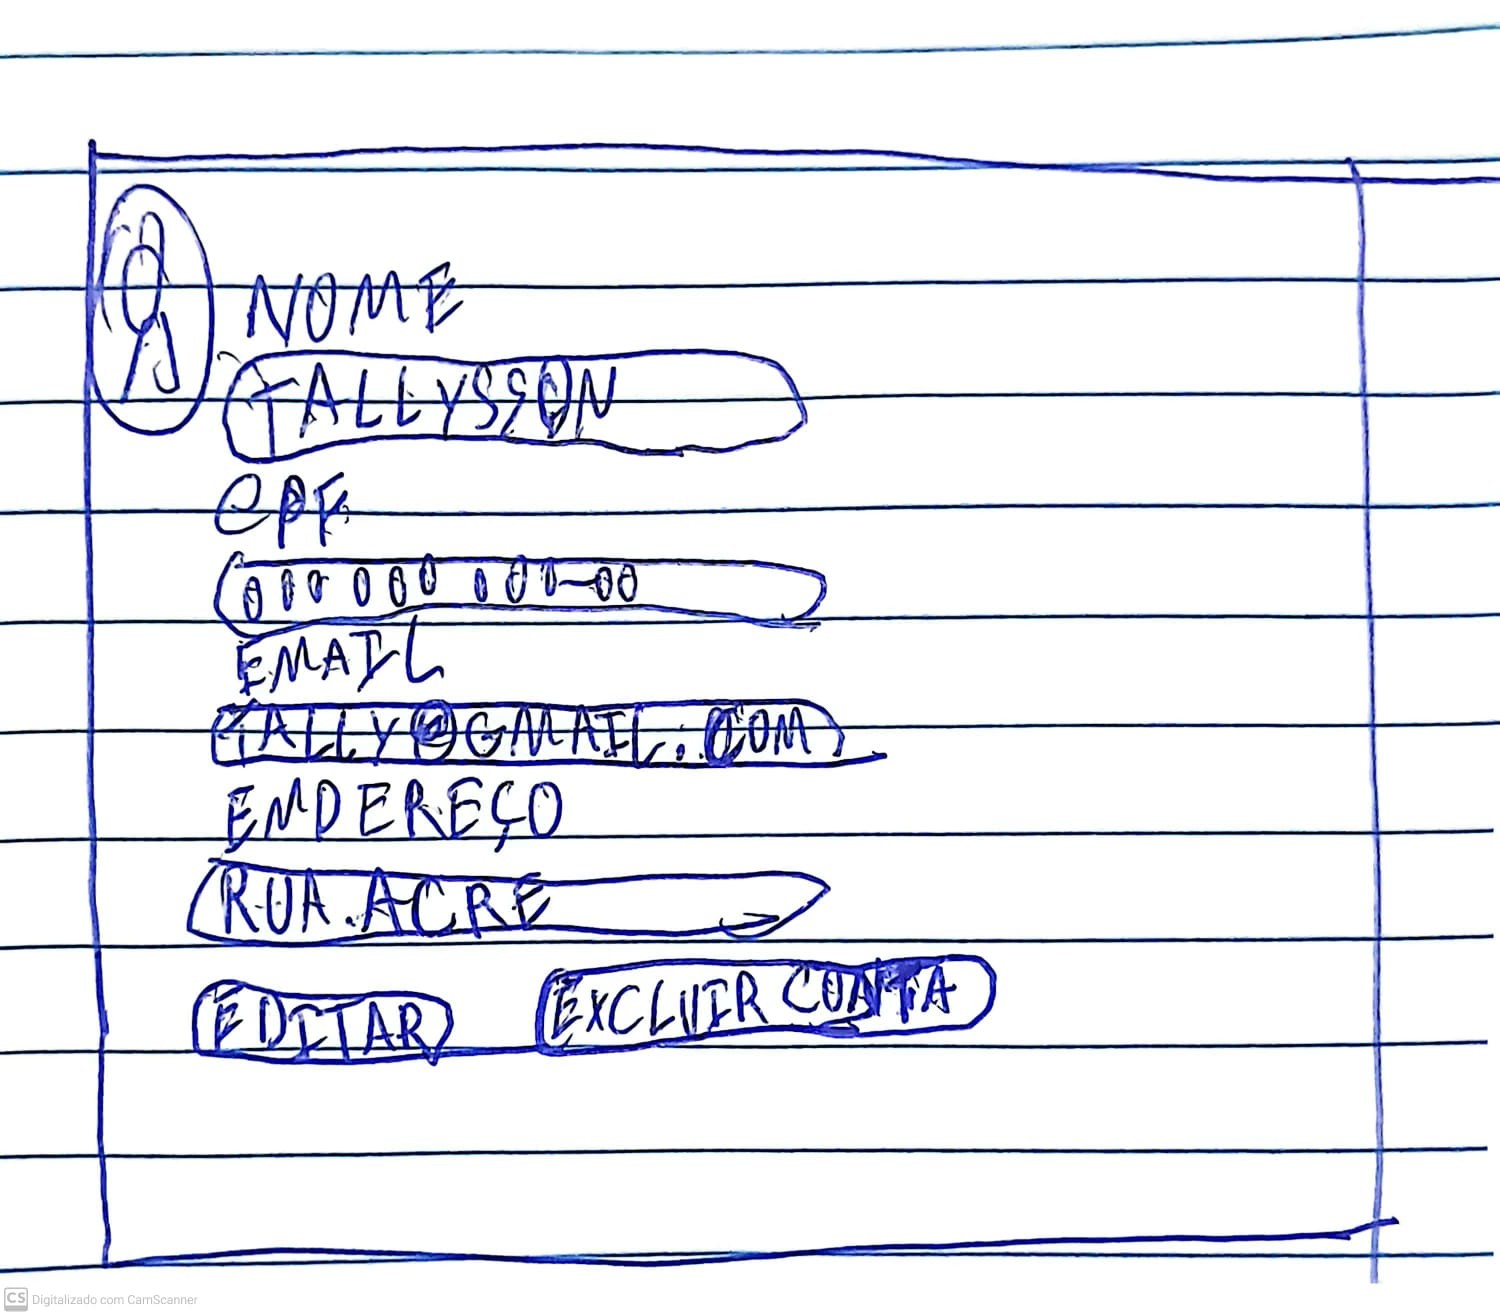 NOME
TALLYSSON
CPF
000 000 000-00
EMAIL
TALLY@GMAIL.COM
ENDEREÇO
RUA.ACRE
EDITAR EXCLUIR CONTA
CS Digitalizado com CamScanner